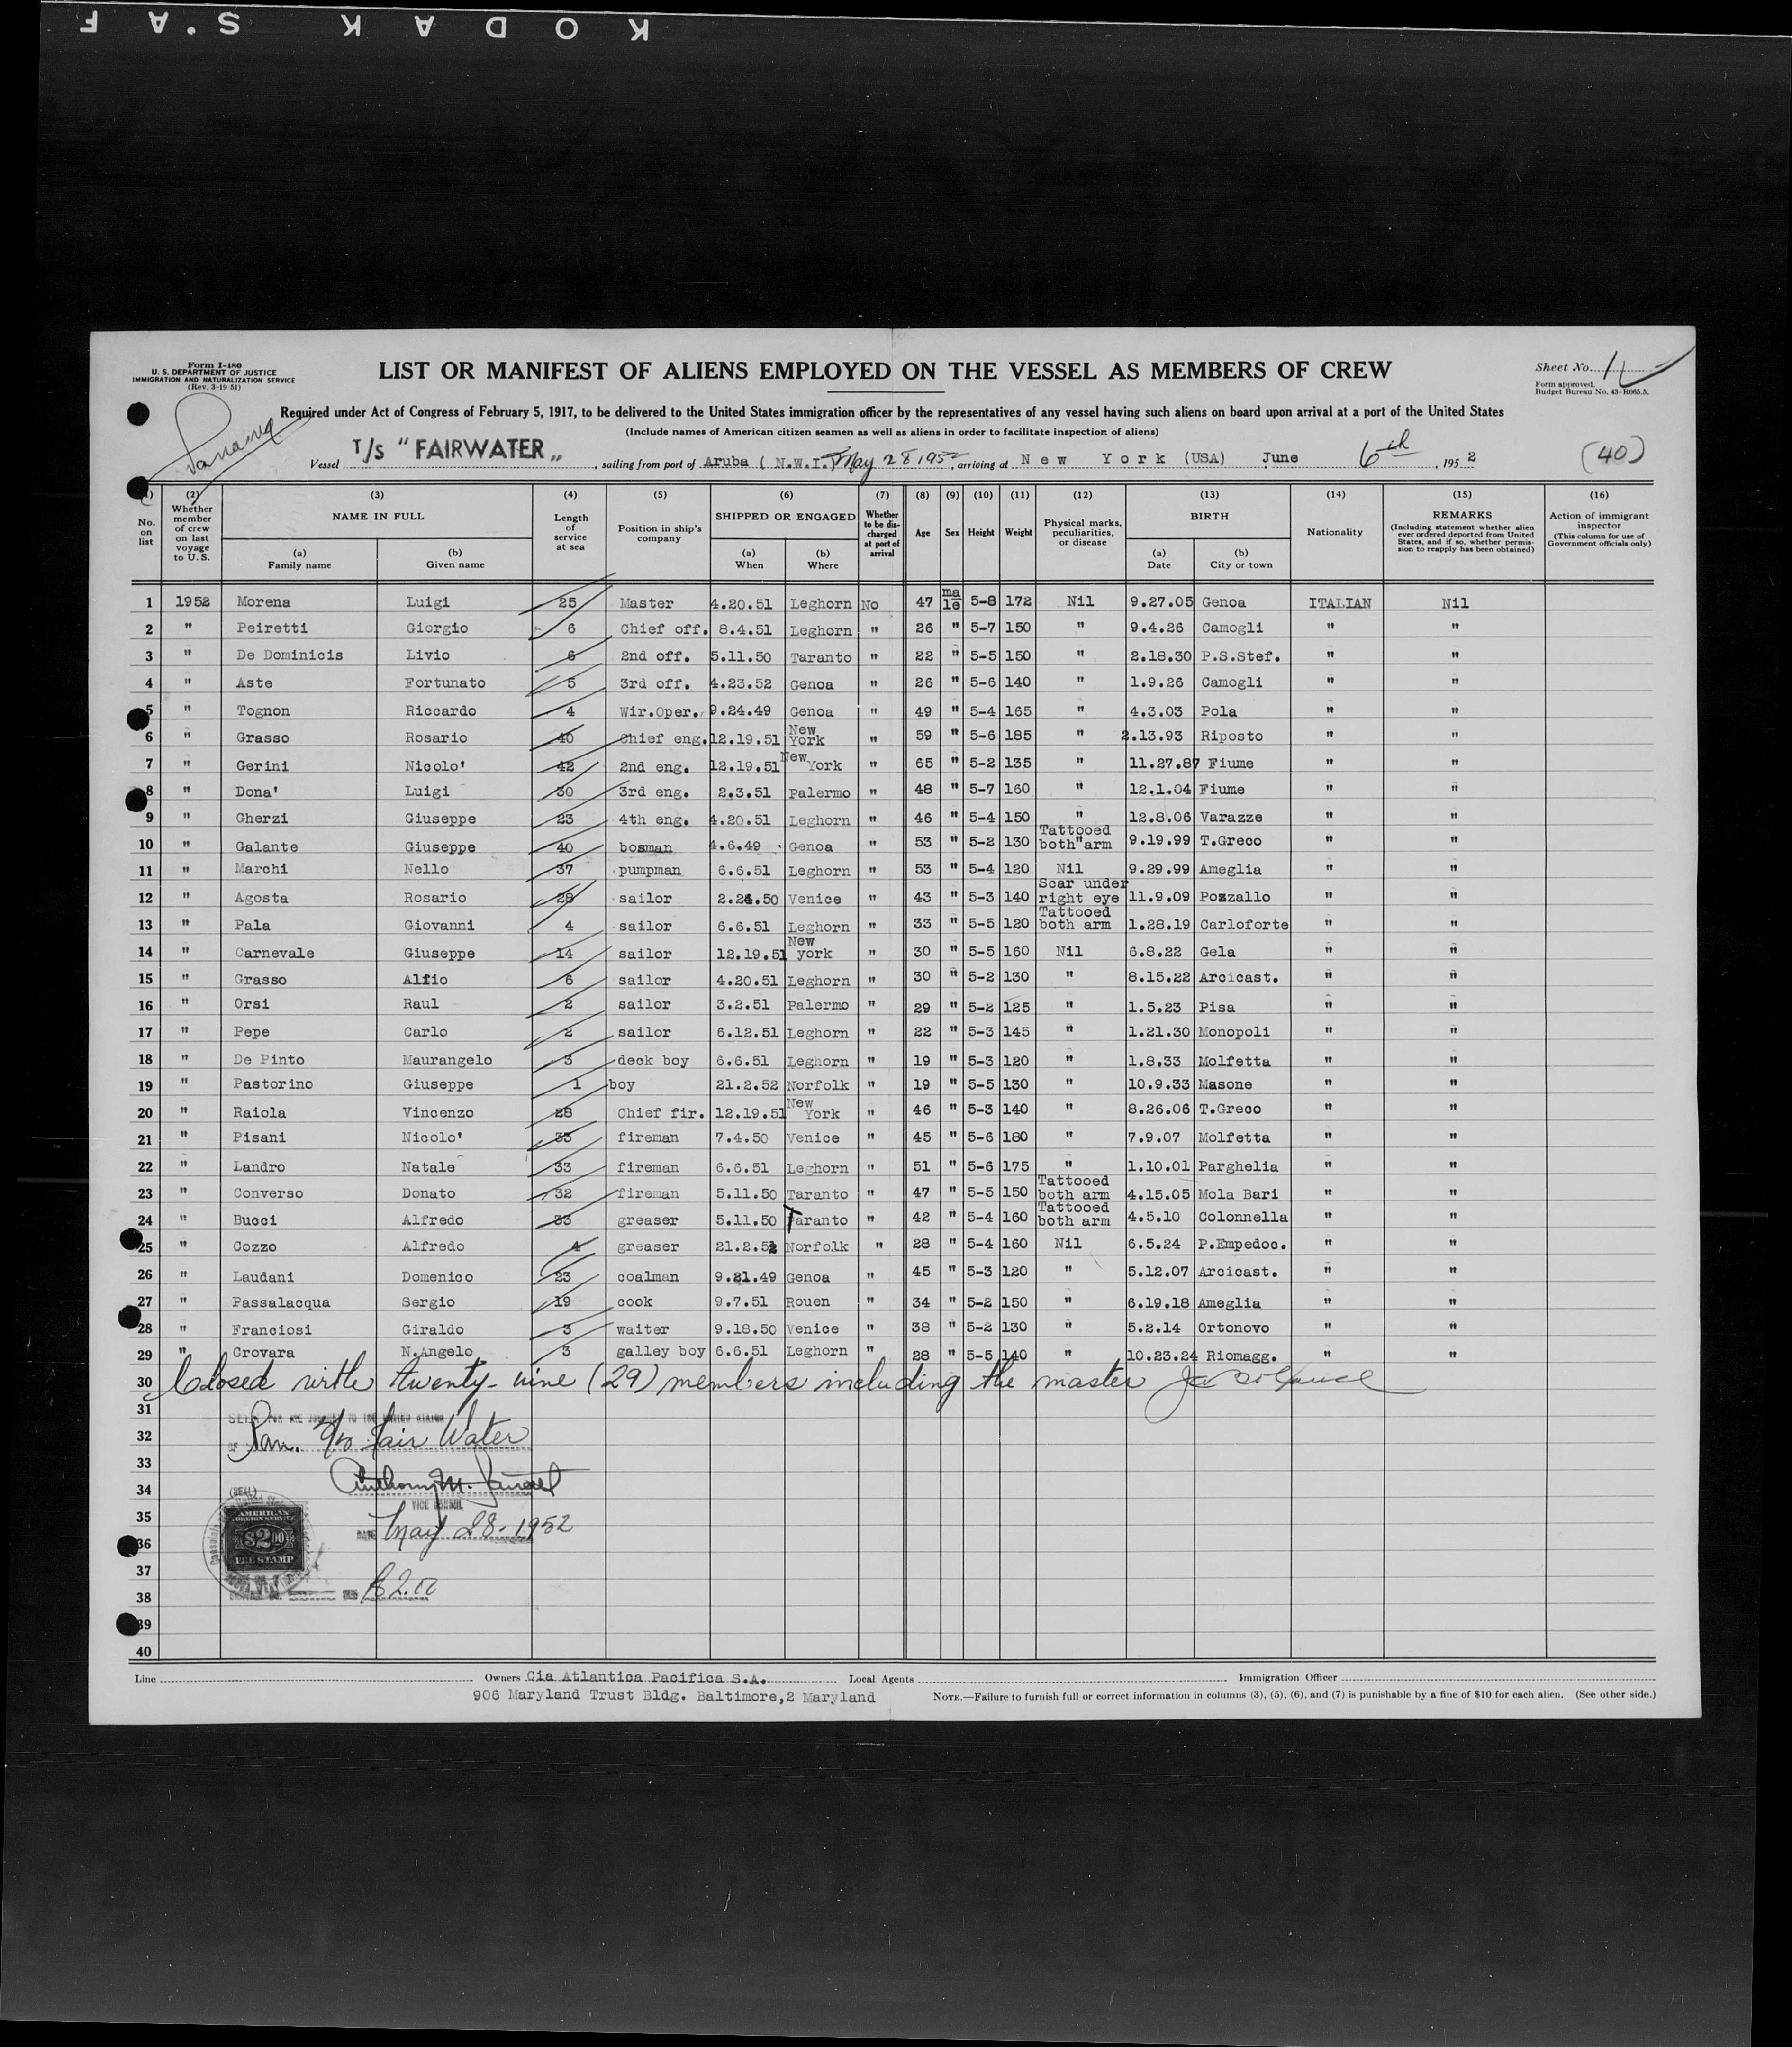 KODAK S.AF
Form I-480
U. S. DEPARTMENT OF JUSTICE
IMMIGRATION AND NATURALIZATION SERVICE
(Rev. 3-19-51)
LIST OR MANIFEST OF ALIENS EMPLOYED ON THE VESSEL AS MEMBERS OF CREW
Sheet No. 1
Form approved.
Budget Bureau No. 43-R065.5.
Required under Act of Congress of February 5, 1917, to be delivered to the United States immigration officer by the representatives of any vessel having such aliens on board upon arrival at a port of the United States
(Include names of American citizen seamen as well as aliens in order to facilitate inspection of aliens)
Panama
Vessel T/S "FAIRWATER", sailing from port of Aruba (N.W.I.) May 28 1952, arriving at New York (USA) June 6th, 1952
(40)
(1) No. on list (2) Whether member of crew on last voyage to U.S. (3) NAME IN FULL (a) Family name (b) Given name (4) Length of service at sea (5) Position in ship's company (6) SHIPPED OR ENGAGED (a) When (b) Where (7) Whether to be discharged at port of arrival (8) Age (9) Sex (10) Height (11) Weight (12) Physical marks, peculiarities, or disease (13) BIRTH (a) Date (b) City or town (14) Nationality (15) REMARKS (Including statement whether alien ever ordered deported from United States, and if so, whether permission to reapply has been obtained) (16) Action of immigrant inspector (This column for use of Government officials only)
1 1952 Morena Luigi 25 Master 4.20.51 Leghorn No 47 male 5-8 172 Nil 9.27.05 Genoa ITALIAN Nil
2 " Peiretti Giorgio 6 Chief off. 8.4.51 Leghorn " 26 " 5-7 150 " 9.4.26 Camogli " "
3 " De Dominicis Livio 6 2nd off. 5.11.50 Taranto " 22 " 5-5 150 " 2.18.30 P.S.Stef. " "
4 " Aste Fortunato 5 3rd off. 4.23.52 Genoa " 26 " 5-6 140 " 1.9.26 Camogli " "
5 " Tognon Riccardo 4 Wir.Oper. 9.24.49 Genoa " 49 " 5-4 165 " 4.3.03 Pola " "
6 " Grasso Rosario 40 Chief eng. 12.19.51 New York " 59 " 5-6 185 " 2.13.93 Riposto " "
7 " Gerini Nicolo' 42 2nd eng. 12.19.51 New York " 65 " 5-2 135 " 11.27.87 Fiume " "
8 " Dona' Luigi 30 3rd eng. 2.3.51 Palermo " 48 " 5-7 160 " 12.1.04 Fiume " "
9 " Gherzi Giuseppe 23 4th eng. 4.20.51 Leghorn " 46 " 5-4 150 " 12.8.06 Varazze " "
10 " Galante Giuseppe 40 bosman 4.6.49 Genoa " 53 " 5-2 130 Tattooed both arm 9.19.99 T.Greco " "
11 " Marchi Nello 37 pumpman 6.6.51 Leghorn " 53 " 5-4 120 Nil 9.29.99 Ameglia " "
12 " Agosta Rosario 28 sailor 2.24.50 Venice " 43 " 5-3 140 Scar under right eye 11.9.09 Pozzallo " "
13 " Pala Giovanni 4 sailor 6.6.51 Leghorn " 33 " 5-5 120 Tattooed both arm 1.28.19 Carloforte " "
14 " Carnevale Giuseppe 14 sailor 12.19.51 New york " 30 " 5-5 160 Nil 6.8.22 Gela " "
15 " Grasso Alfio 6 sailor 4.20.51 Leghorn " 30 " 5-2 130 " 8.15.22 Arcicast. " "
16 " Orsi Raul 2 sailor 3.2.51 Palermo " 29 " 5-2 125 " 1.5.23 Pisa " "
17 " Pepe Carlo 2 sailor 6.12.51 Leghorn " 22 " 5-3 145 " 1.21.30 Monopoli " "
18 " De Pinto Maurangelo 3 deck boy 6.6.51 Leghorn " 19 " 5-3 120 " 1.8.33 Molfetta " "
19 " Pastorino Giuseppe 1 boy 21.2.52 Norfolk " 19 " 5-5 130 " 10.9.33 Masone " "
20 " Raiola Vincenzo 28 Chief fir. 12.19.51 New York " 46 " 5-3 140 " 8.26.06 T.Greco " "
21 " Pisani Nicolo' 33 fireman 7.4.50 Venice " 45 " 5-6 180 " 7.9.07 Molfetta " "
22 " Landro Natale 33 fireman 6.6.51 Leghorn " 51 " 5-6 175 " 1.10.01 Parghelia " "
23 " Converso Donato 32 fireman 5.11.50 Taranto " 47 " 5-5 150 Tattooed both arm 4.15.05 Mola Bari " "
24 " Bucci Alfredo 33 greaser 5.11.50 Taranto " 42 " 5-4 160 Tattooed both arm 4.5.10 Colonnella " "
25 " Cozzo Alfredo 4 greaser 21.2.52 Norfolk " 28 " 5-4 160 Nil 6.5.24 P.Empedoc. " "
26 " Laudani Domenico 23 coalman 9.21.49 Genoa " 45 " 5-3 120 " 5.12.07 Arcicast. " "
27 " Passalacqua Sergio 19 cook 9.7.51 Rouen " 34 " 5-2 150 " 6.19.18 Ameglia " "
28 " Franciosi Giraldo 3 waiter 9.18.50 Venice " 38 " 5-2 130 " 5.2.14 Ortonovo " "
29 " Crovara N.Angelo 3 galley boy 6.6.51 Leghorn " 28 " 5-5 140 " 10.23.24 Riomagg. " "
30 Closed with twenty-nine (29) members including the master
31 FOR THE JOURNEY TO THE UNITED STATES
32 OF Pan. S/S Fair Water
33
34 (SEAL) Anthony M.
VICE CONSUL
35 DATE May 28-1952
AMERICAN FOREIGN SERVICE
$2.00
FEE STAMP
36
37
38 $2.00
39
40
Line Owners Cia Atlantica Pacifica S.A. Local Agents Immigration Officer
906 Maryland Trust Bldg. Baltimore,2 Maryland
NOTE.—Failure to furnish full or correct information in columns (3), (5), (6), and (7) is punishable by a fine of $10 for each alien. (See other side.)